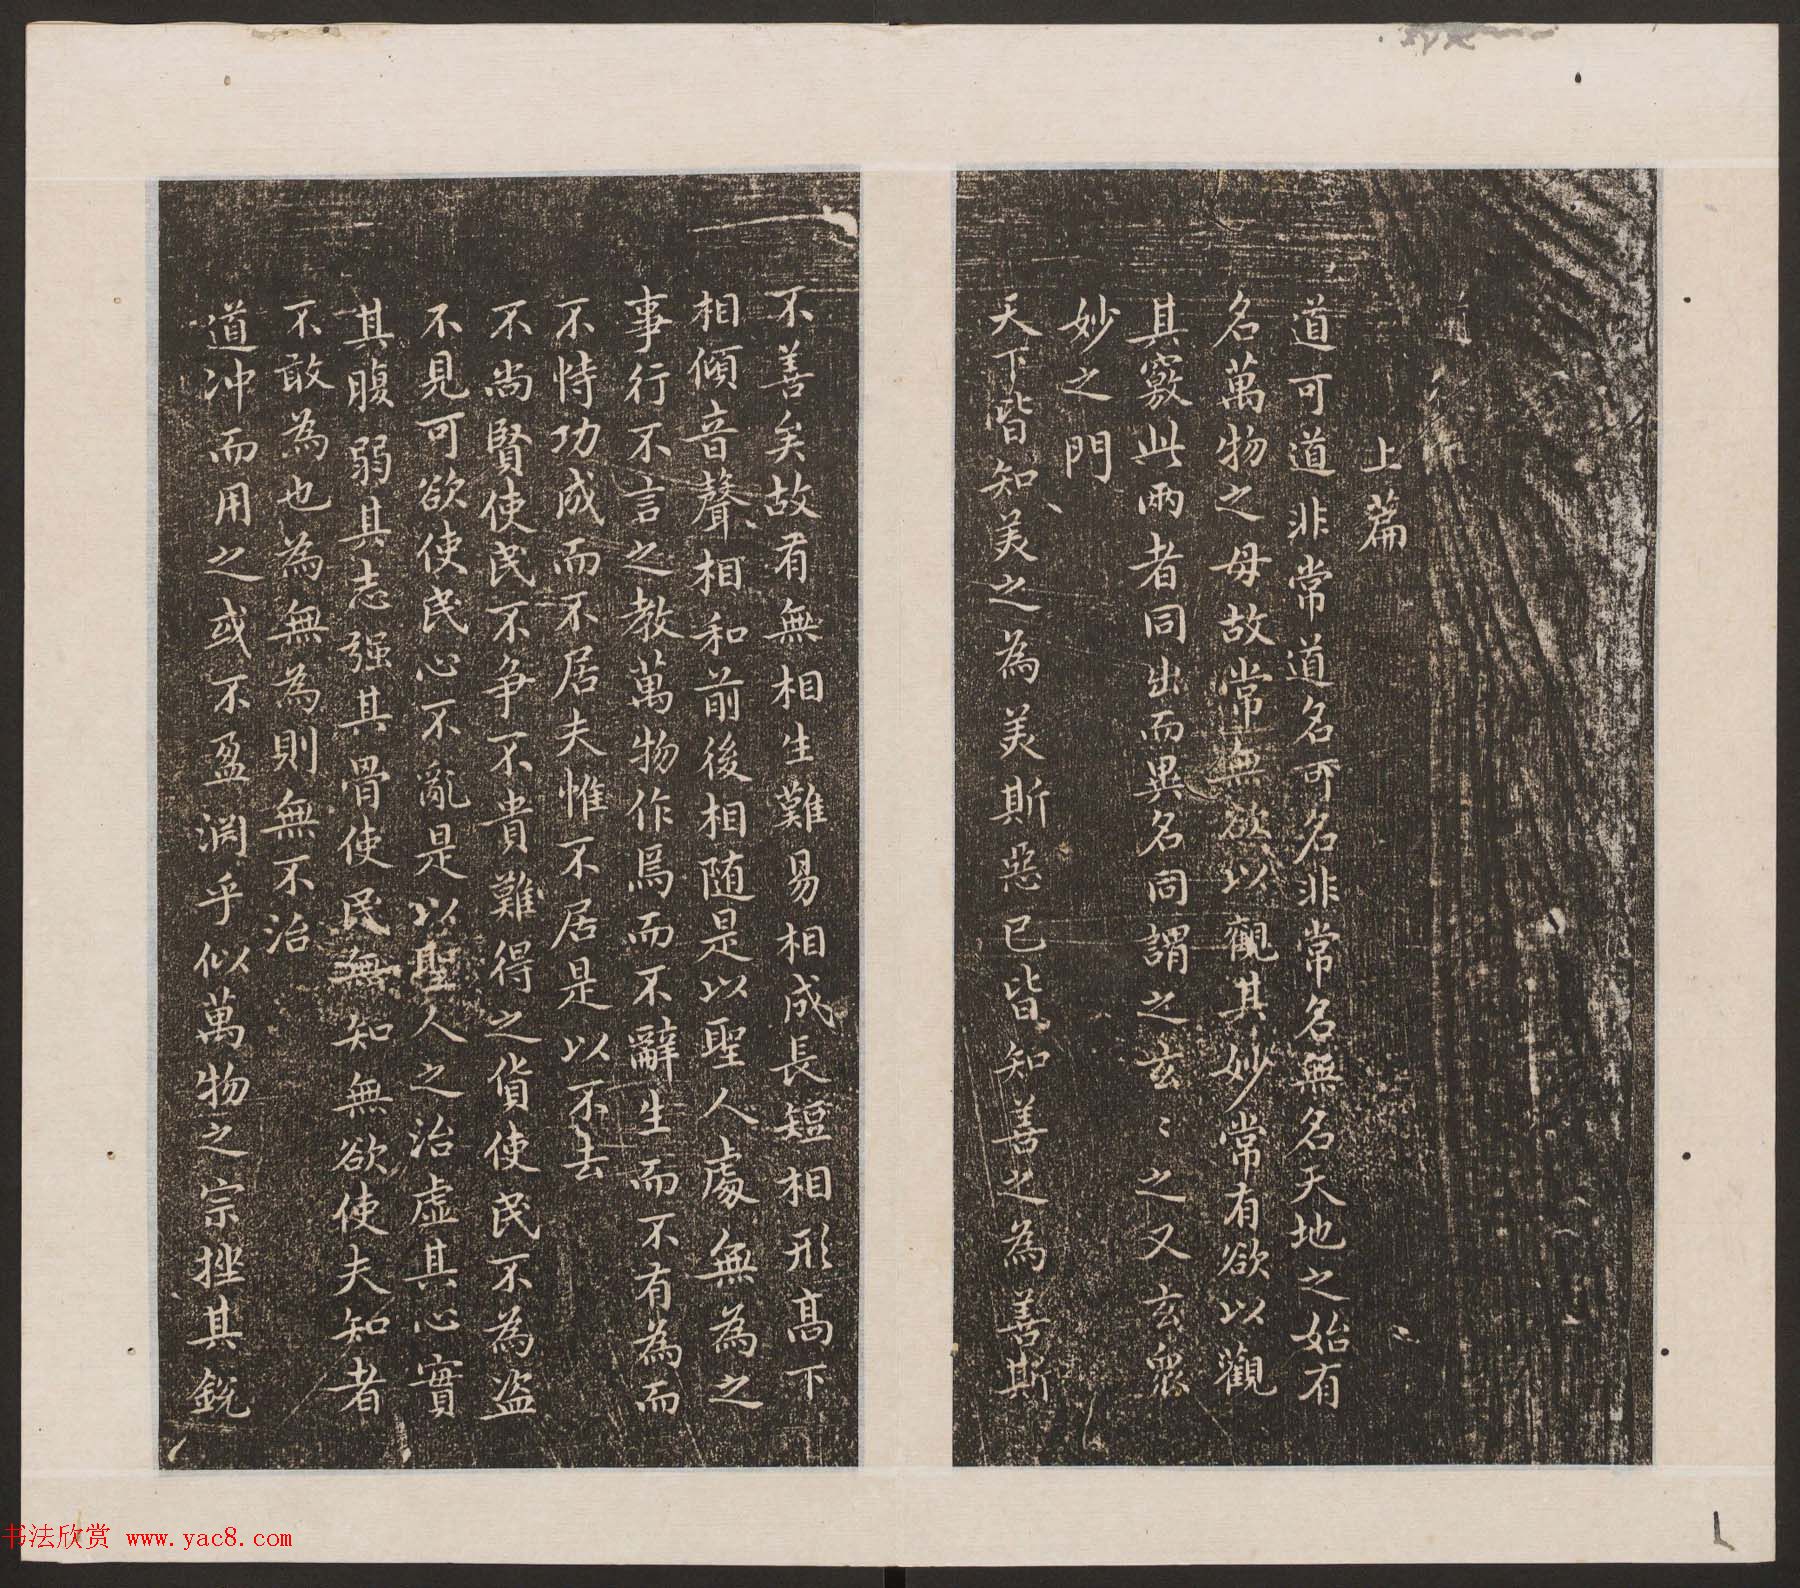 道
上篇
道可道非常道名可名非常名無名天地之始有
名萬物之母故常無欲以觀其妙常有欲以觀
其竅此兩者同出而異名同謂之玄〻之又玄衆
妙之門
天下皆知美之為美斯惡已皆知善之為善斯
不善矣故有無相生難易相成長短相形高下
相傾音聲相和前後相随是以聖人處無為之
事行不言之教萬物作焉而不辭生而不有為而
不恃功成而不居夫惟不居是以不去
不尚賢使民不争不貴難得之貨使民不為盗
不見可欲使民心不亂是以聖人之治虚其心實
其腹弱其志强其骨使民無知無欲使夫知者
不敢為也為無為則無不治
道冲而用之或不盈渊乎似萬物之宗挫其銳
书法欣赏 www.yac8.com